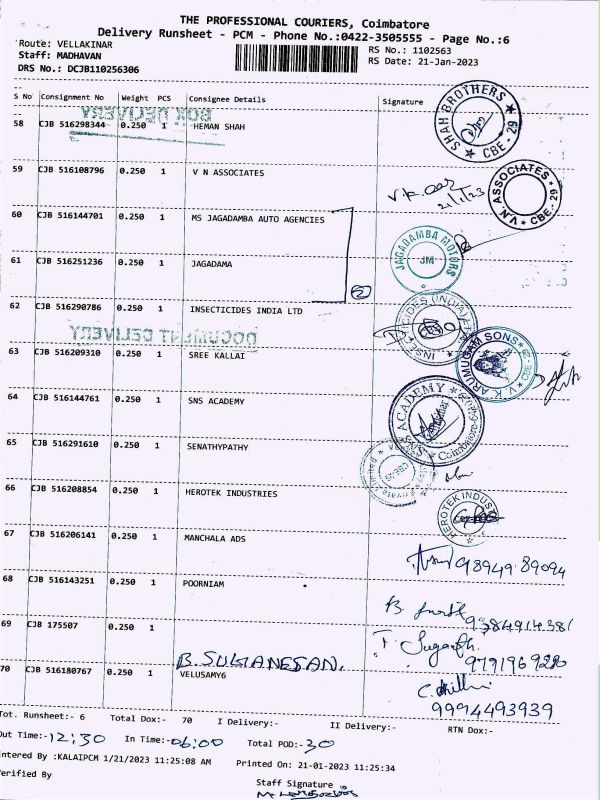 THE PROFESSIONAL COURIERS, Coimbatore
Delivery Runsheet - PCM - Phone No.:0422-3505555 - Page No.:6
Route: VELLAKINAR RS No.: 1102563
Staff: MADHAVAN RS Date: 21-Jan-2023
DRS No.: DCJB110256306
S No Consignment No Weight PCS Consignee Details Signature
BOX DELIVERY
58 CJB 516298344 0.250 1 HEMAN SHAH
SHAH BROTHERS ★ CBE - 29 ★
59 CJB 516108796 0.250 1 V N ASSOCIATES
21/1/23
V.N. ASSOCIATES ★ CBE - 29 ★
60 CJB 516144701 0.250 1 MS JAGADAMBA AUTO AGENCIES
61 CJB 516251236 0.250 1 JAGADAMA
JAGADAMBA MOTORS
JM
2
62 CJB 516290786 0.250 1 INSECTICIDES INDIA LTD
INSECTICIDES (INDIA)
DOCUMENT DELIVERY
63 CJB 516209310 0.250 1 SREE KALLAI
V.K. ARUMUGAM SONS
64 CJB 516144761 0.250 1 SNS ACADEMY
SNS ACADEMY
65 CJB 516291610 0.250 1 SENATHYPATHY
66 CJB 516208854 0.250 1 HEROTEK INDUSTRIES
HEROTEK INDUST
67 CJB 516206141 0.250 1 MANCHALA ADS
98949 89094
68 CJB 516143251 0.250 1 POORNIAM
9384914381
69 CJB 175507 0.250 1
B. SUGANESAN.
70 CJB 516180767 0.250 1 VELUSAMY6
9994493939
Tot. Runsheet:- 6 Total Dox:- 70 I Delivery:- II Delivery:- RTN Dox:-
Out Time:-12:30 In Time:-06:00 Total POD:-30
Entered By :KALAIPCM 1/21/2023 11:25:08 AM Printed On: 21-01-2023 11:25:34
Verified By
Staff Signature